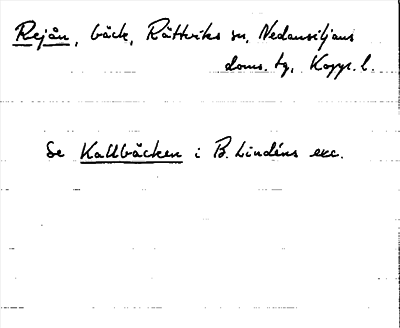 Rejån, bäck, Rättviks sn, Nedansiljans
doms. tg, Kopp. l.
Se Kallbäcken i B. Lindéns exc.